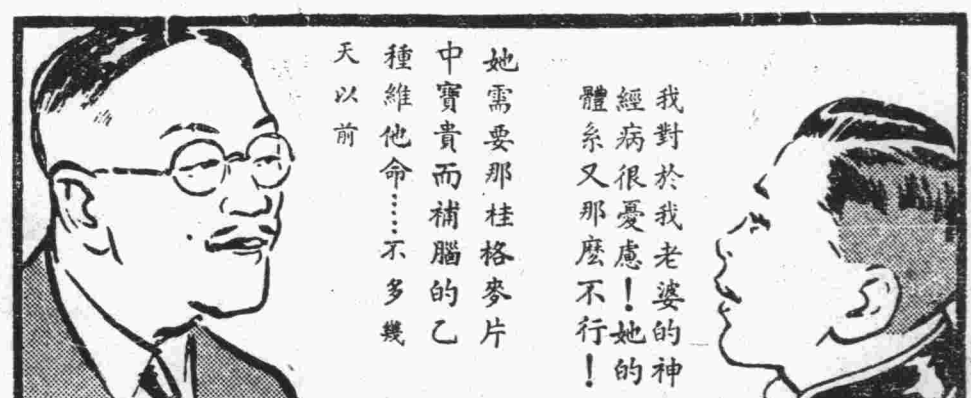 我對於我老婆的神
經病很憂慮！她的
體系又那麽不行！
她需要那桂格麥片
中寶貴而補腦的乙
種維他命……不多幾
天以前